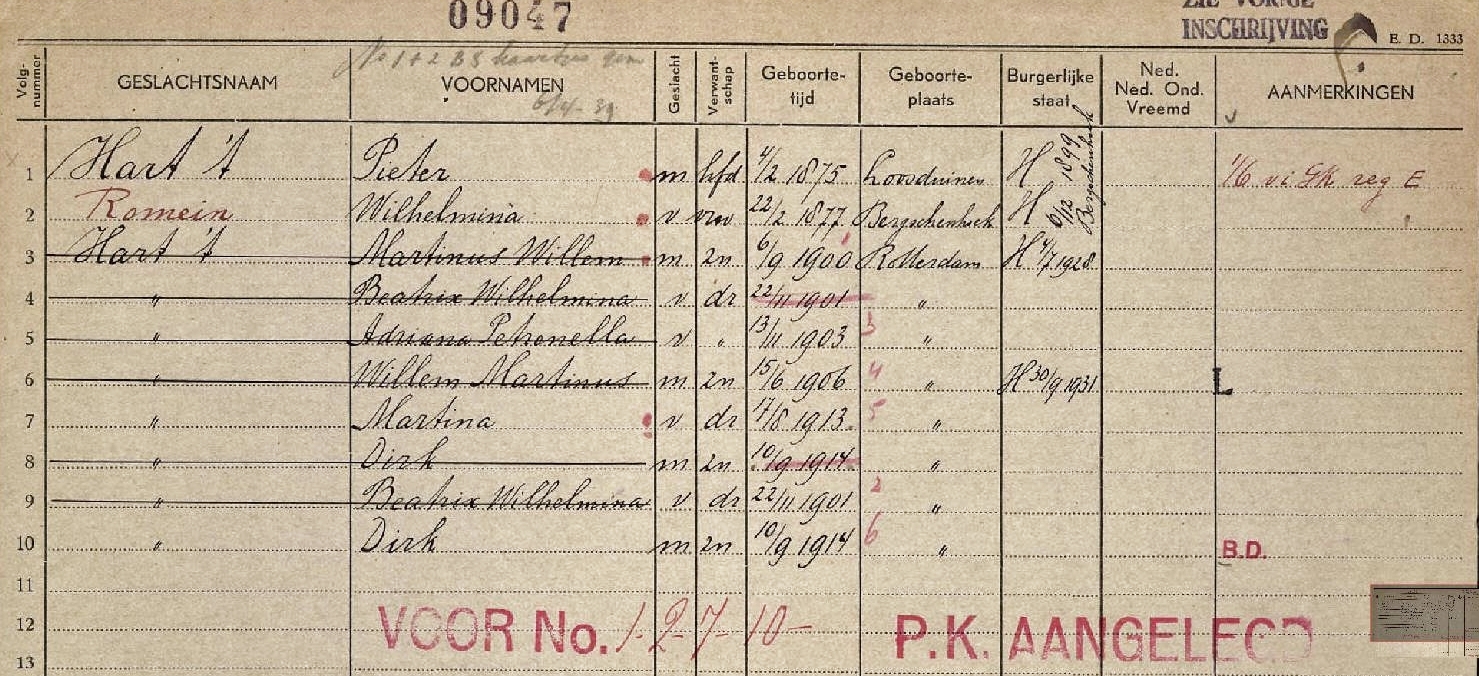 09047
ZIE VORIGE
INSCHRIJVING
E. D. 1333
No 1+2 BS
6/4-39
Volg-nummer GESLACHTSNAAM VOORNAMEN Geslacht Verwant-schap Geboorte-tijd Geboorte-plaats Burgerlijke staat Ned. Ned. Ond. Vreemd AANMERKINGEN
1 Hart 't Pieter m hfd 4/2 1875 Loosduinen H 1/6 vi Gk reg E
2 Romein Wilhelmina v vrw 22/2 1877 Bergschenhoek H 6/12 1899 Bergschenhoek
3 Hart 't Martinus Willem m zn 6/9 1900 1 Rotterdam H 4/7 1928
4 " Beatrix Wilhelmina v dr 22/11 1901 "
5 " Adriana Petronella v " 13/11 1903 3 "
6 " Willem Martinus m zn 15/6 1906 4 " H 30/9 1931 L
7 " Martina v dr 17/8 1913 5 "
8 " Dirk m zn 10/9 1914 "
9 " Beatrix Wilhelmina v dr 22/11 1901 2 "
10 " Dirk m zn 10/9 1914 6 " B.D.
11
12 VOOR No. 1-2-7-10- P.K. AANGELEGD
13